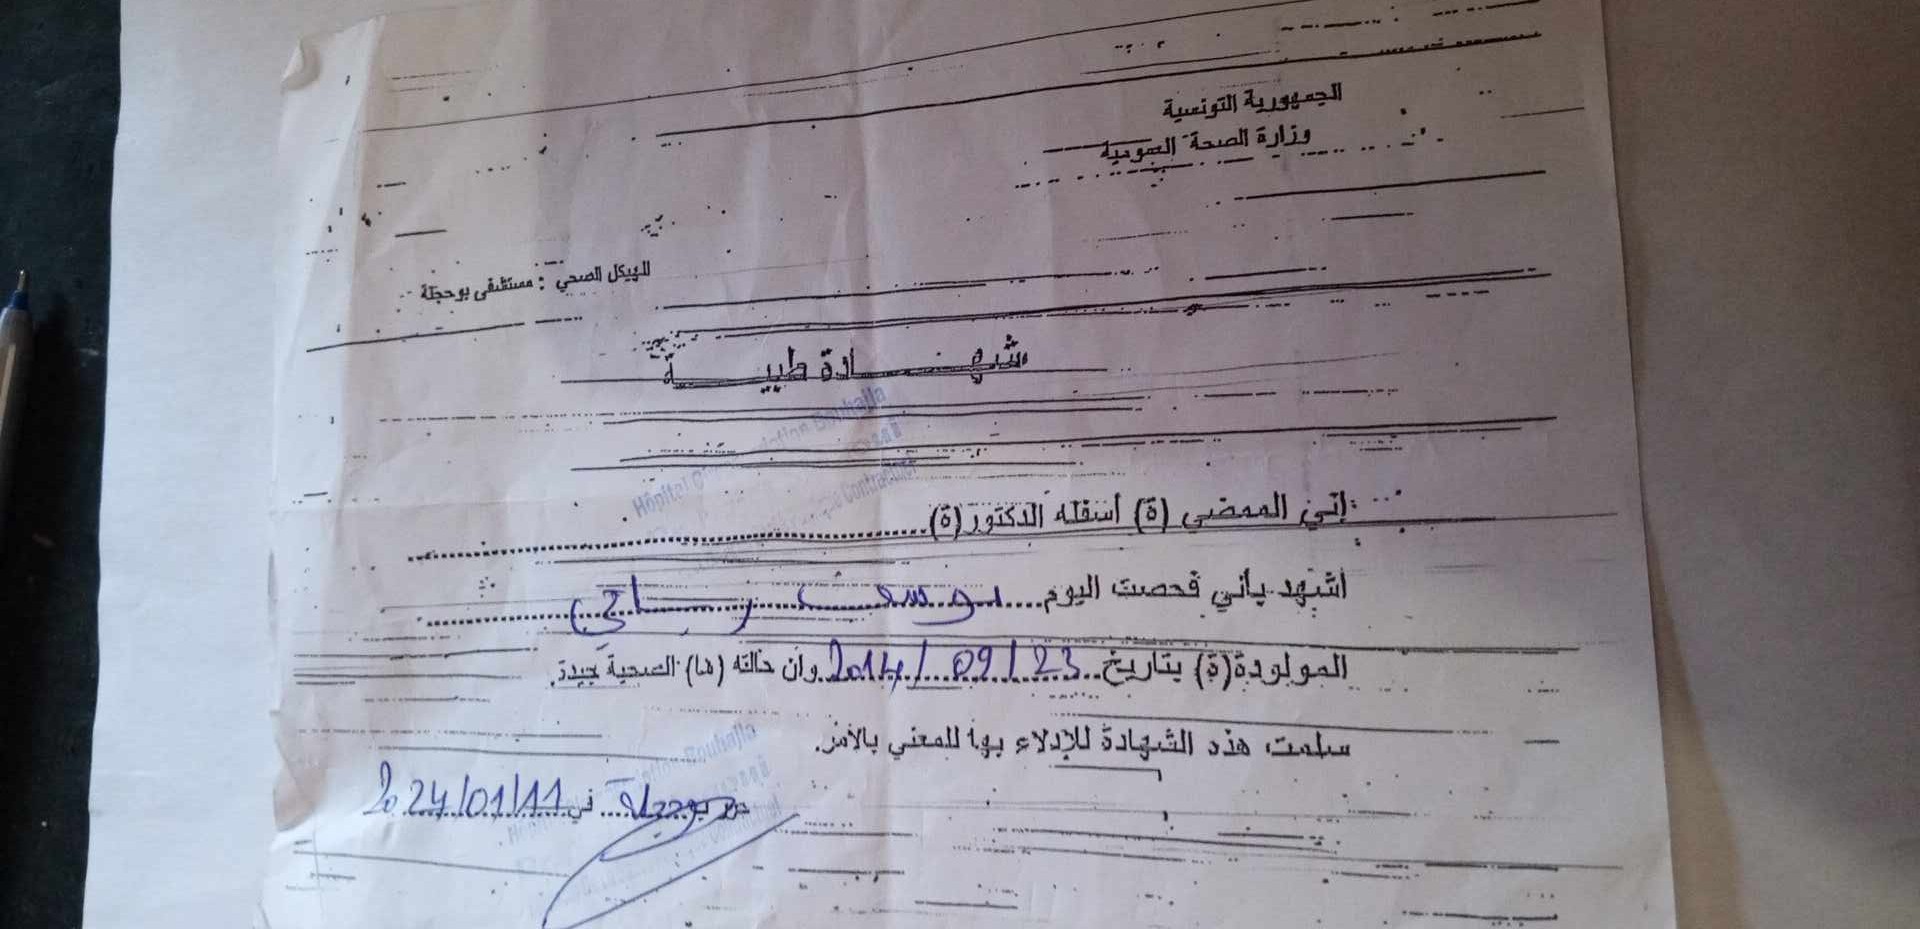 الجمهورية التونسية
وزارة الصحة العمومية
الهيكل الصحي : مستشفى بوحجلة
شهـــــادة طبيـــــة
Hôpital Bouhajla
إني الممضي (ة) أسفله الدكتور(ة)..............................
أشهد بأني فحصت اليوم.... يوسف
المولودة(ة) بتاريخ..2014/09/23..وأن حالته (ها) الصحية جيدة.
سلمت هذه الشهادة للإدلاء بها للمعني بالأمر.
Bouhajla
بوحجلة.... في 2024/01/11